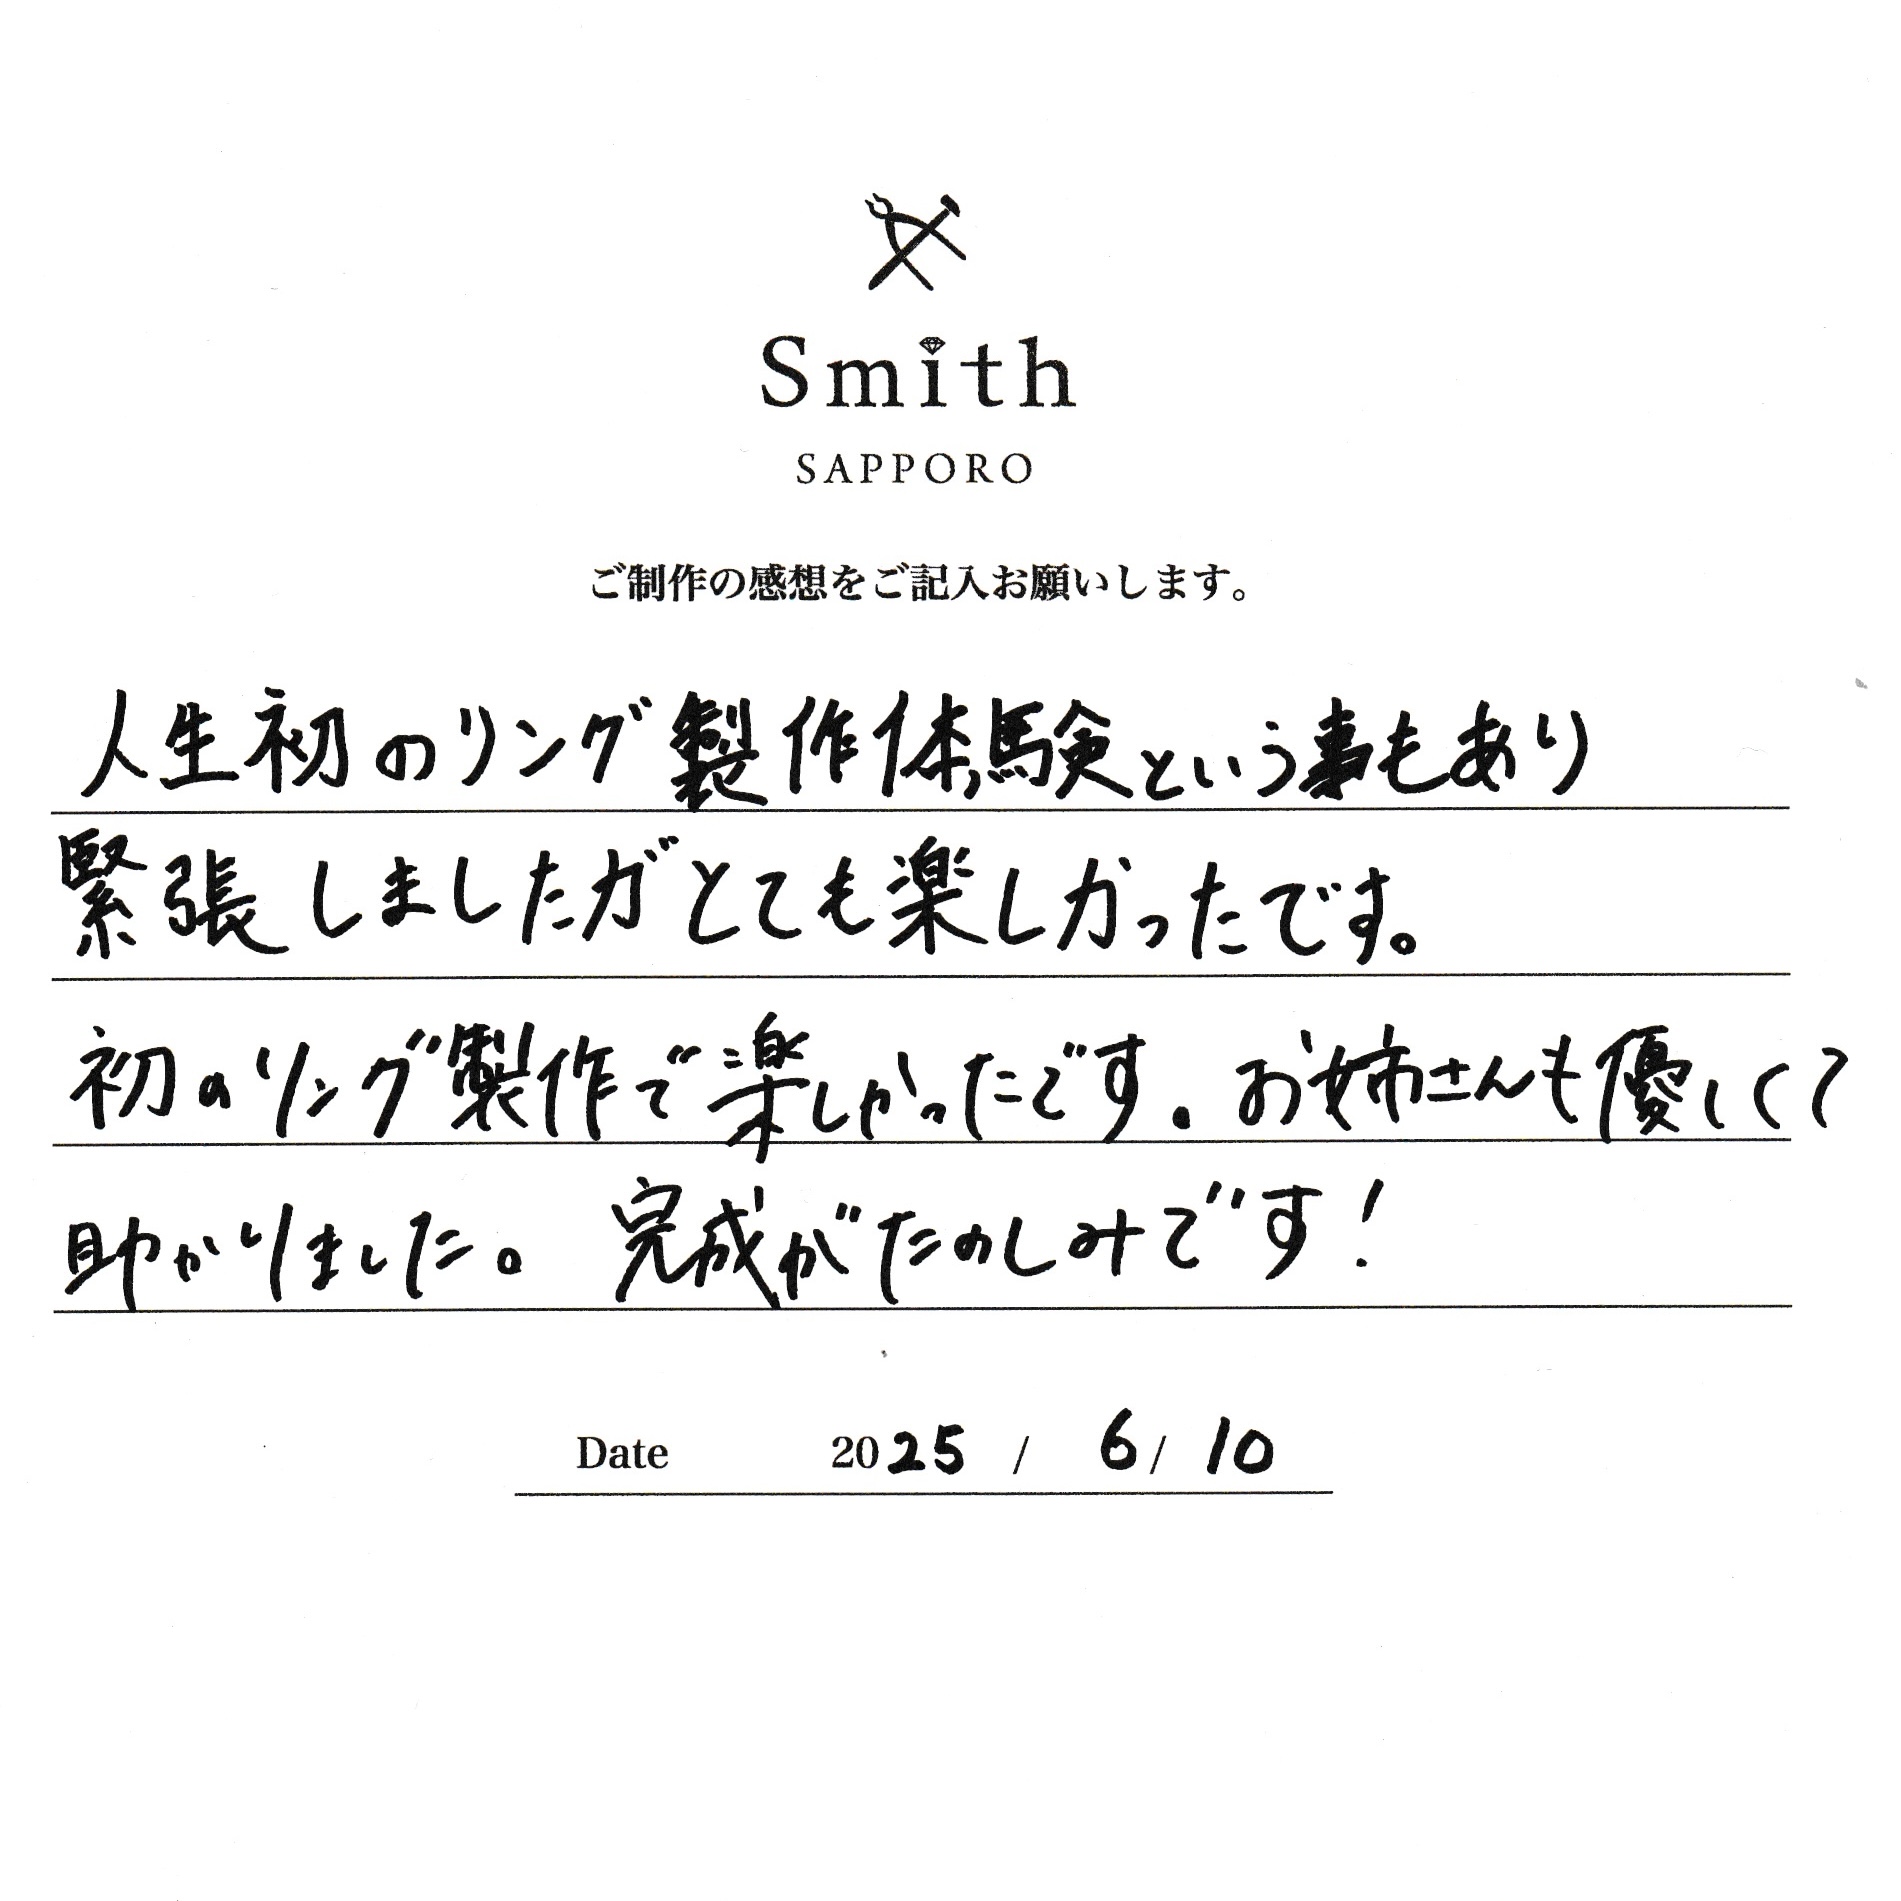 Smith
SAPPORO
ご制作の感想をご記入お願いします。
人生初のリング製作体験という事もあり
緊張しましたがとても楽しかったです。
初のリング製作で楽しかったです。お姉さんも優しくて
助かりました。完成がたのしみです!
Date 2025 / 6 / 10